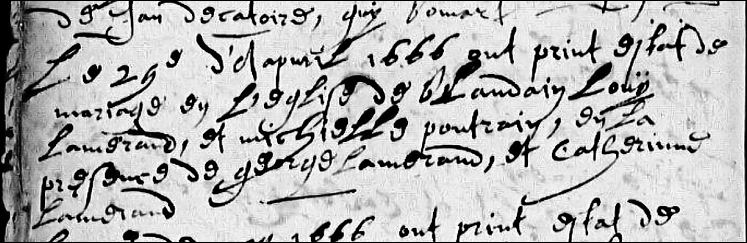 de Jan decatoire, guÿ bomart
Le 29e d'apuril 1666 ont print estat de
mariage en l'eglise de blandain Louÿ
Lamerand, et michielle poutrain, en la
presence de george Lamerand, et Catherinne
Lamerand
1666 ont print estat de